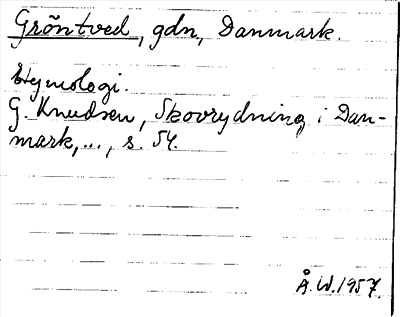 Gröntved, gdn, Danmark.
Etymologi.
G. Knudsen, Skovrydning i Dan-
mark,..., s. 54.
Å.W.1957.